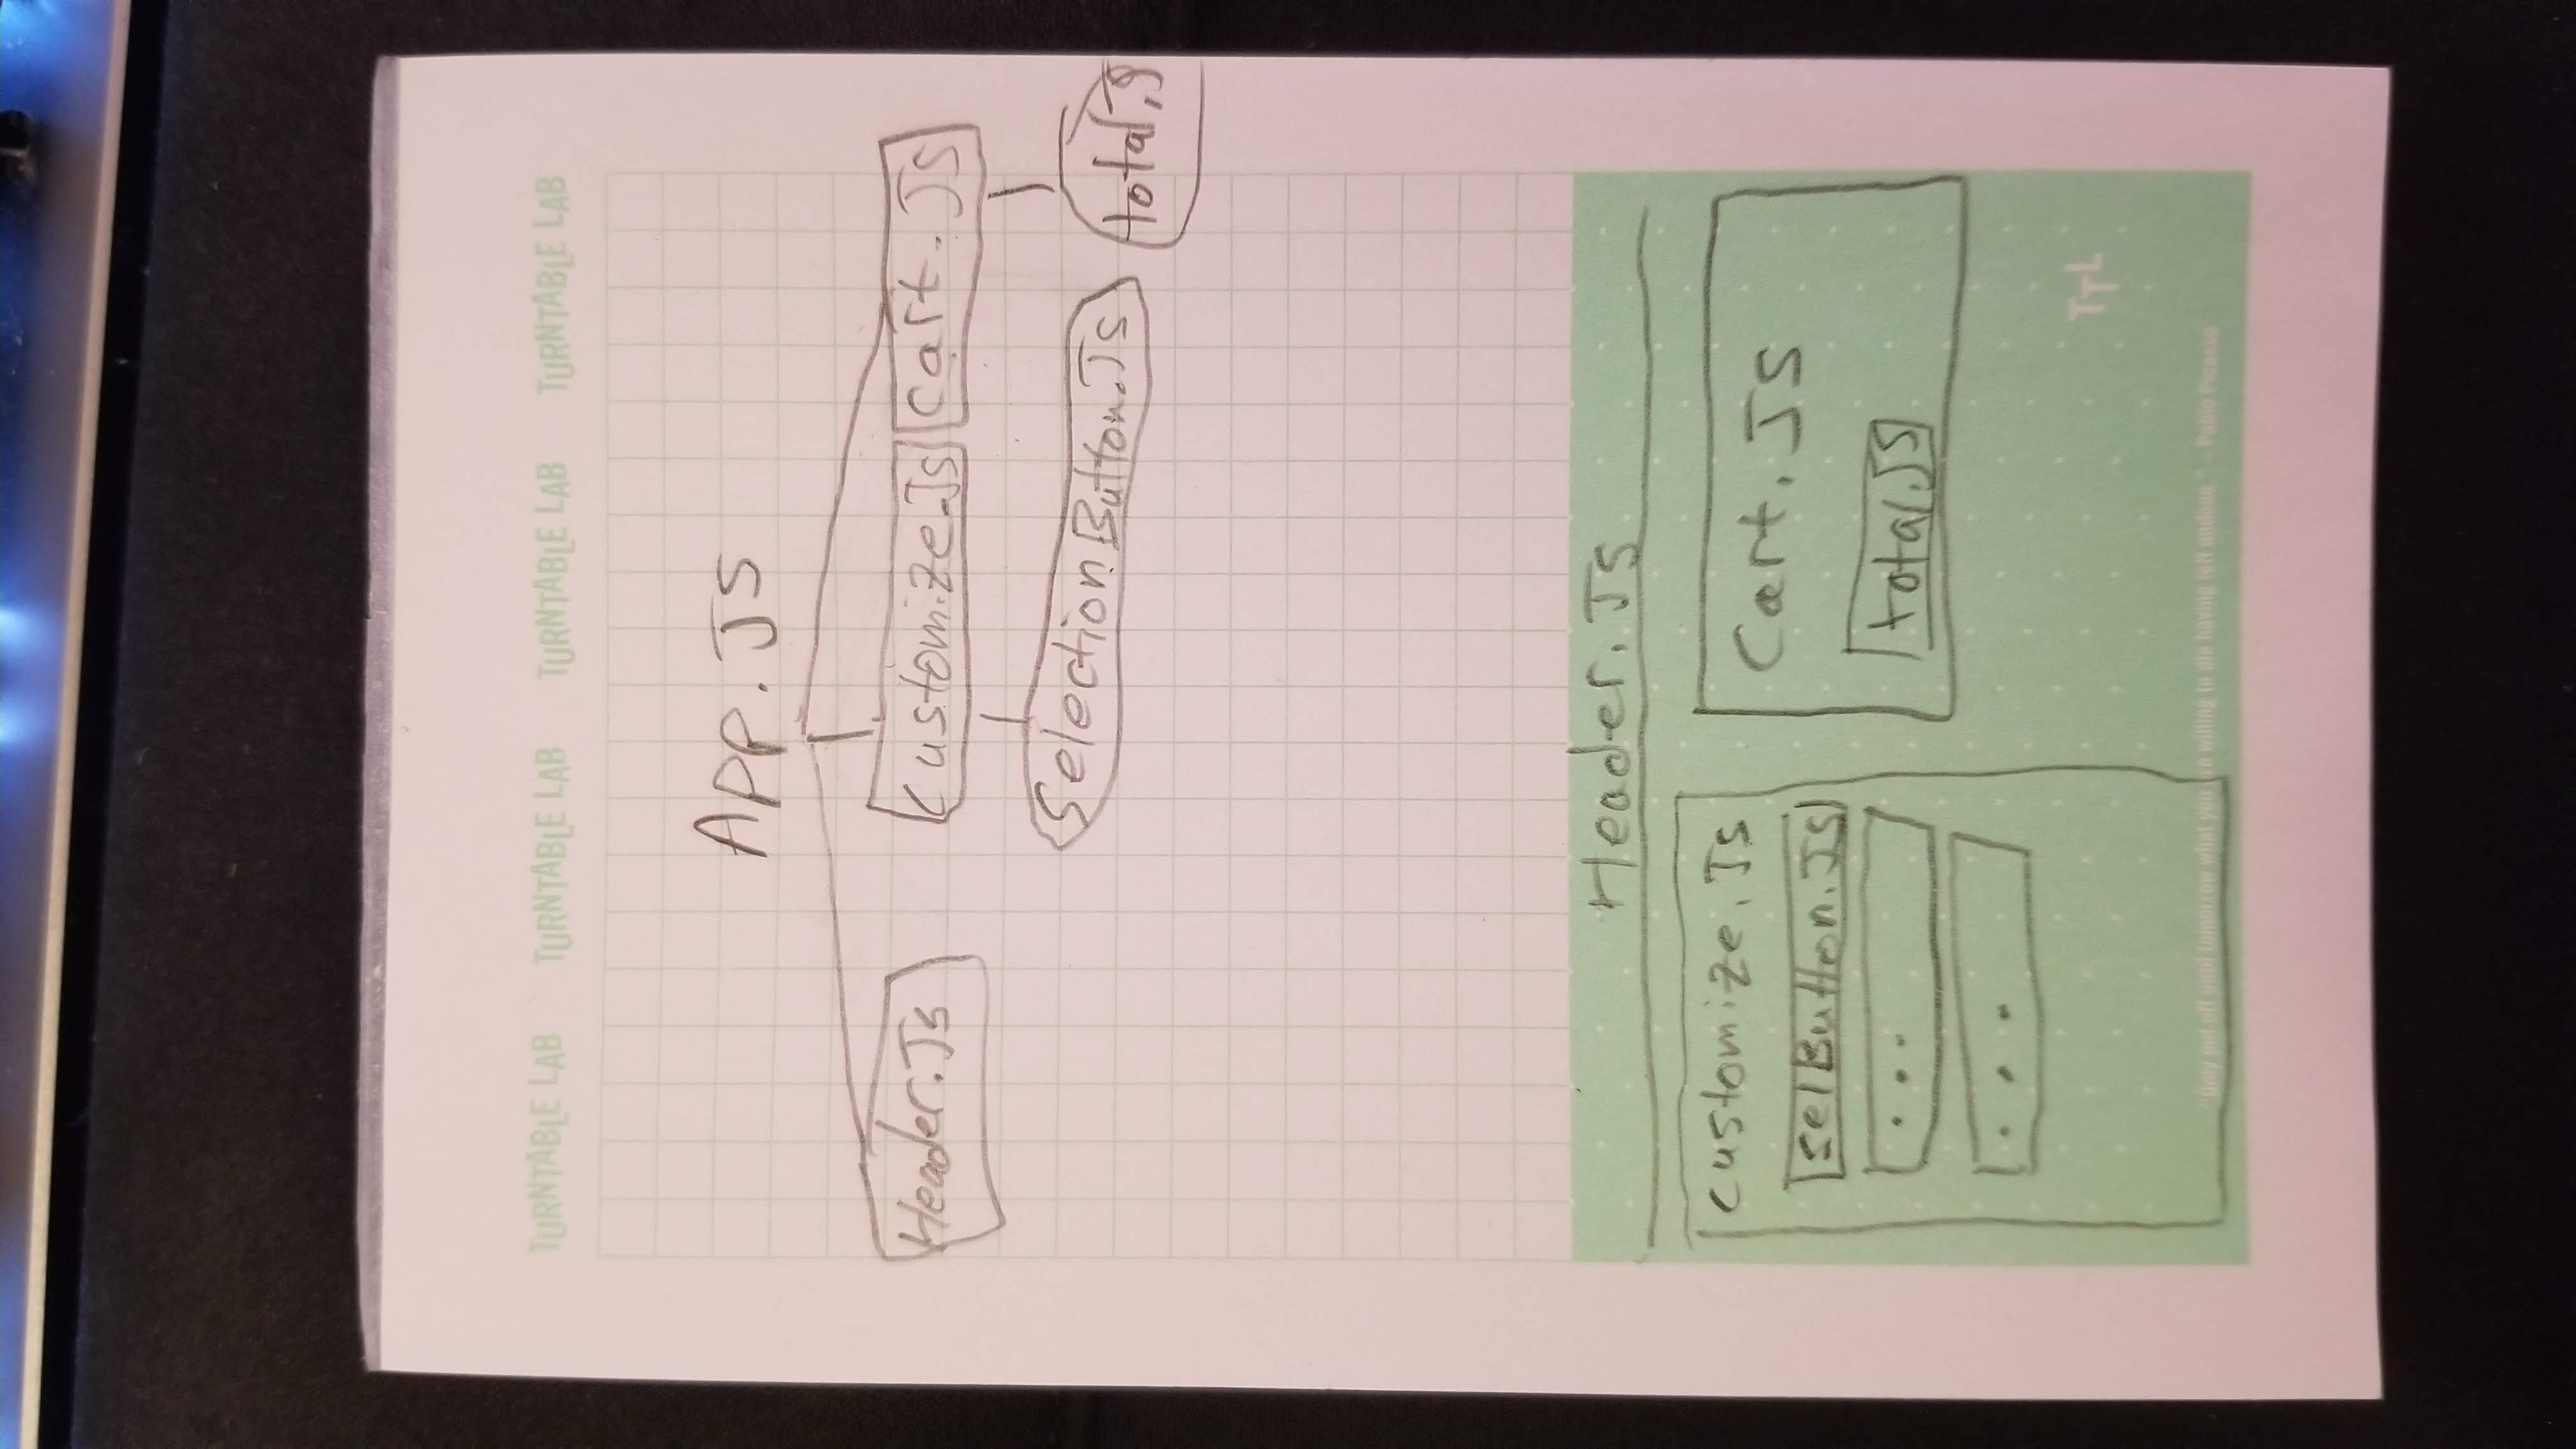 TURNTABLE LAB TURNTABLE LAB TURNTABLE LAB TURNTABLE LAB
App.JS
Header.Js Customize.Js Cart.JS
SelectionButton.Js total.J
Header.JS
Customize.Js
Cart.JS
selButton.Js
total.JS
...
...
TTL
"Only put off until tomorrow what you are willing to die having left undone." - Pablo Picasso